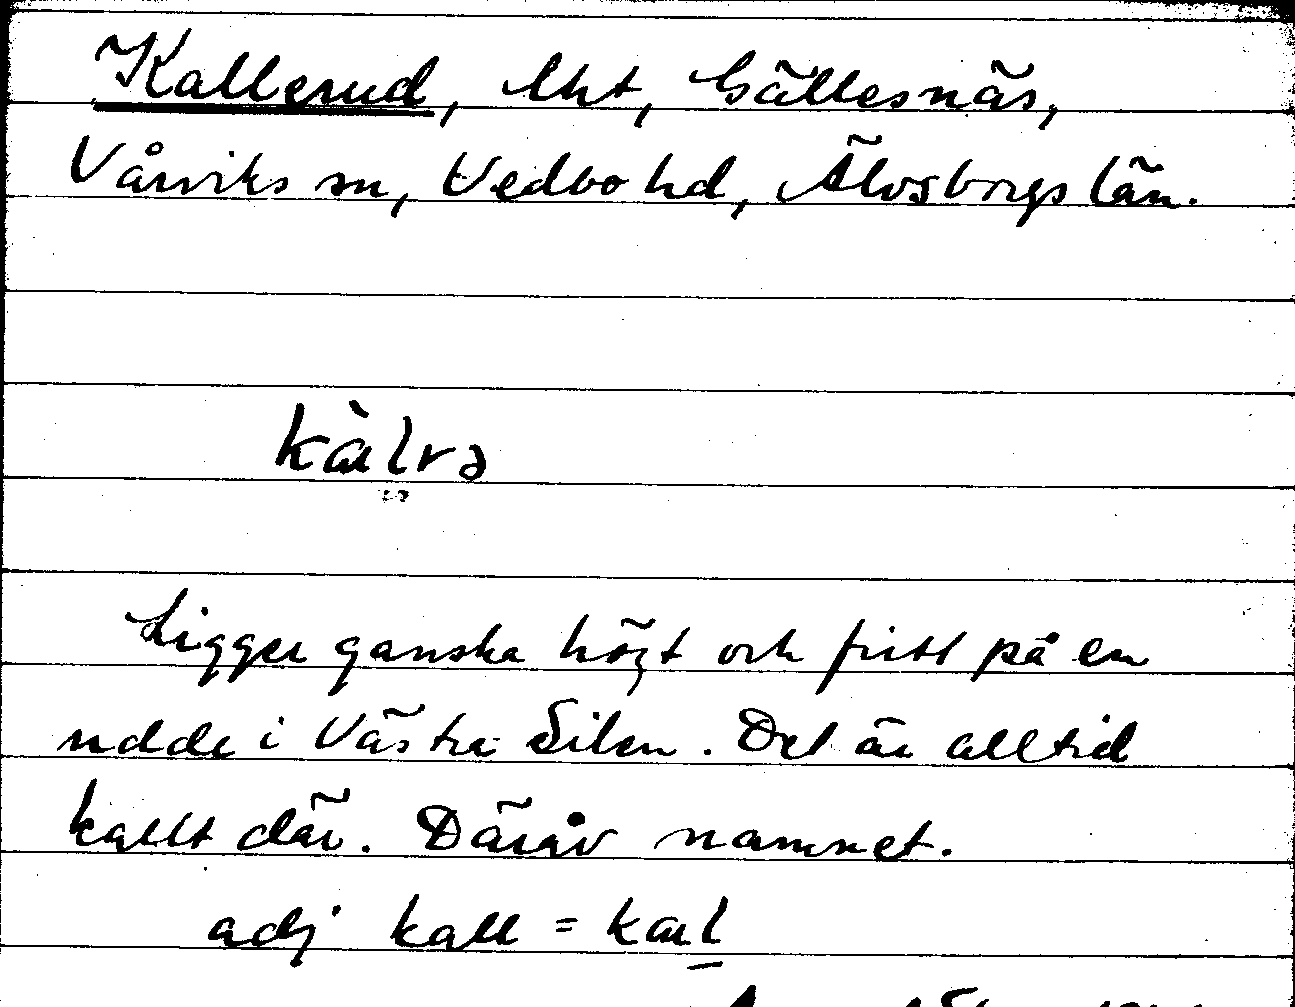 Kallerud, lht, Gällesnäs,
Vårviks sn, Vedbo hd, Älvsborgs län.
kàlrə
Ligger ganska högt och fritt på en
udde i Västra Silen. Det är alltid
kallt där. Däråv namnet.
adj kall = kal